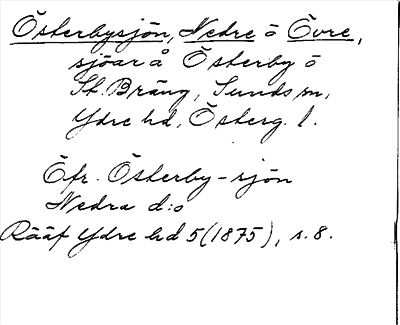 Österbysjön, Nedre o Övre,
sjöar å Österby o
St. Bräng, Sunds sn,
Ydre hd, Österg. l.
Öfr. Österby-sjön
Nedra d:o
Rääf Ydre hd 5(1875), s. 8.